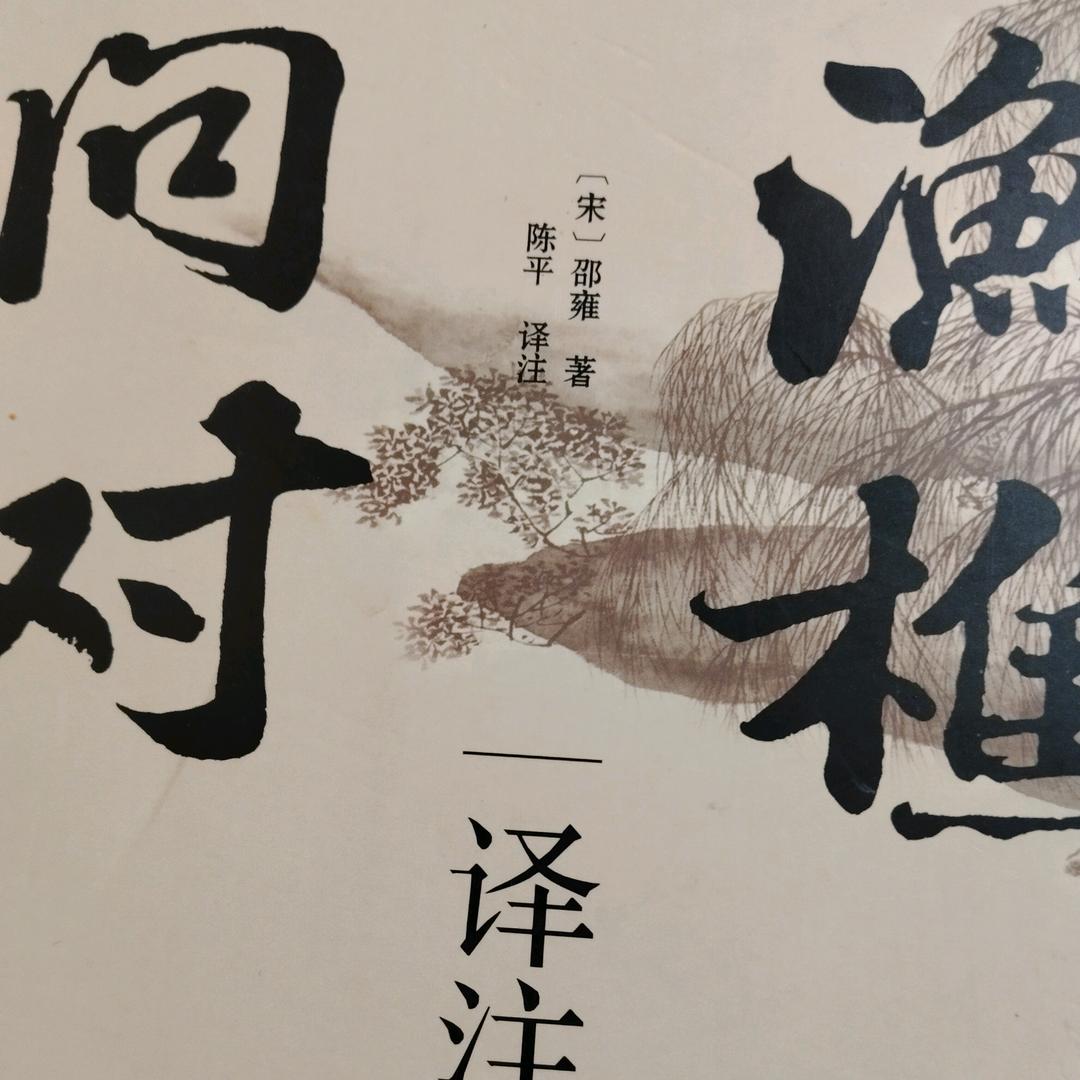 渔樵
问对
〔宋〕邵雍 著
陈平 译注
译注